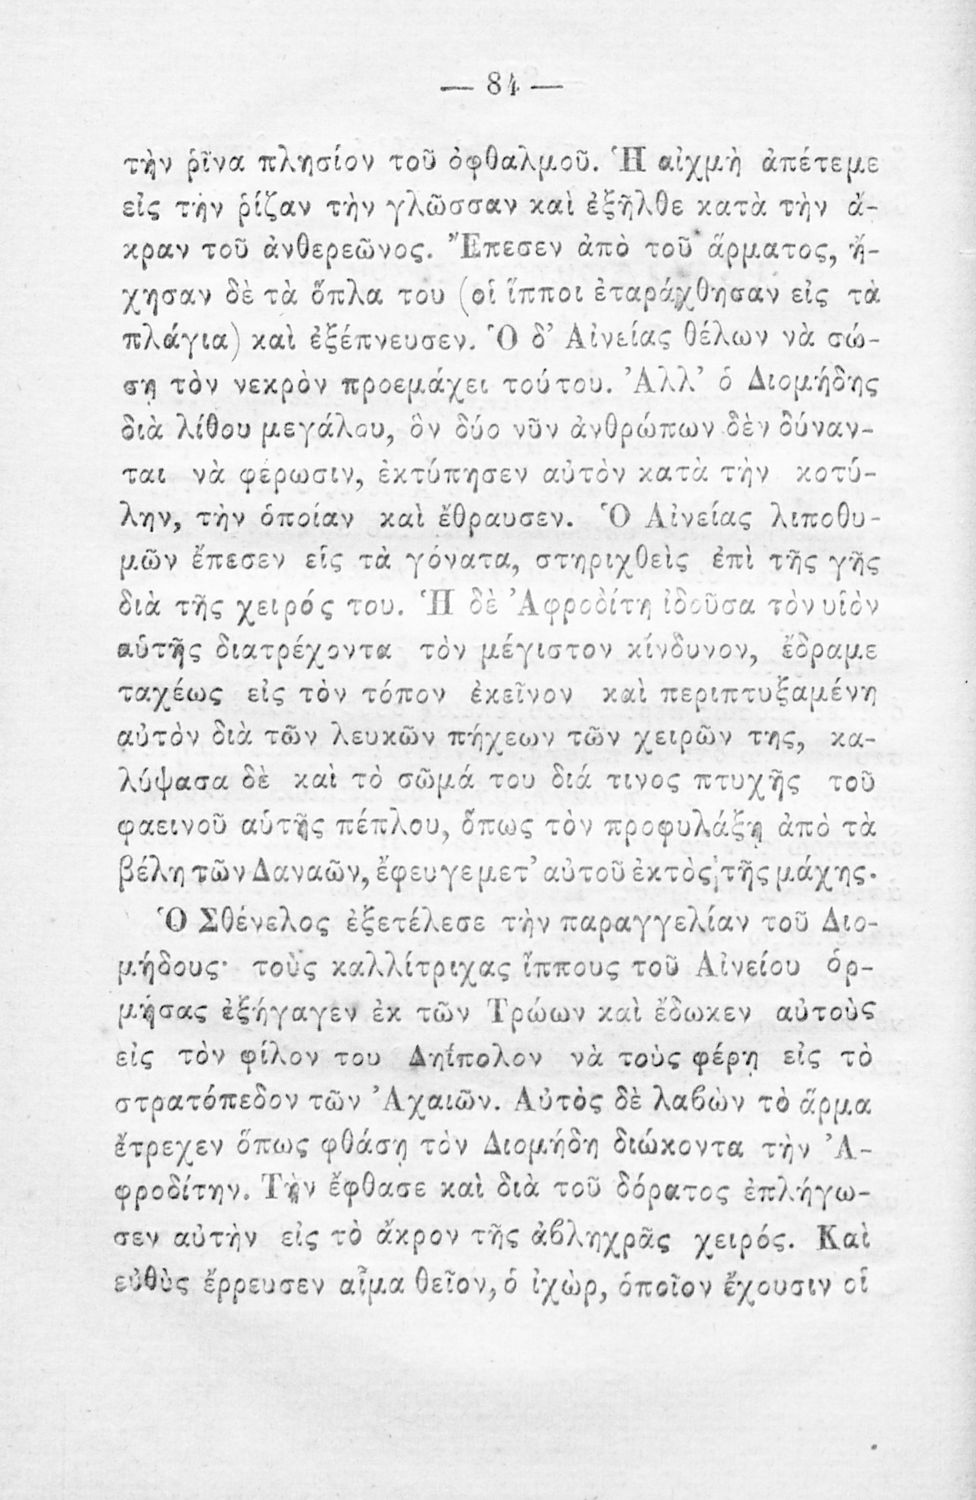 — 84 —
τὴν ῥῖνα πλησίον τοῦ ὀφθαλμοῦ. Ἡ αἰχμὴ ἀπέτεμε
εἰς τὴν ῥίζαν τὴν γλῶσσαν καὶ ἐξῆλθε κατὰ τὴν ἄ-
κραν τοῦ ἀνθερεῶνος. Ἔπεσεν ἀπὸ τοῦ ἅρματος, ἤ-
χησαν δὲ τὰ ὅπλα του (οἱ ἵπποι ἐταράχθησαν εἰς τὰ
πλάγια) καὶ ἐξέπνευσεν. Ὁ δ’ Αἰνείας θέλων νὰ σώ-
σῃ τὸν νεκρὸν προεμάχει τούτου. Ἀλλ’ ὁ Διομήδης
διὰ λίθου μεγάλου, ὃν δύο νῦν ἀνθρώπων δὲν δύναν-
ται νὰ φέρωσιν, ἐκτύπησεν αὐτὸν κατὰ τὴν κοτύ-
λην, τὴν ὁποίαν καὶ ἔθραυσεν. Ὁ Αἰνείας λιποθυ-
μῶν ἔπεσεν εἰς τὰ γόνατα, στηριχθεὶς ἐπὶ τῆς γῆς
διὰ τῆς χειρός του. Ἡ δὲ Ἀφροδίτη ἰδοῦσα τὸν υἱὸν
αὑτῆς διατρέχοντα τὸν μέγιστον κίνδυνον, ἔδραμε
ταχέως εἰς τὸν τόπον ἐκεῖνον καὶ περιπτυξαμένη
αὐτὸν διὰ τῶν λευκῶν πήχεων τῶν χειρῶν της, κα-
λύψασα δὲ καὶ τὸ σῶμά του διά τινος πτυχῆς τοῦ
φαεινοῦ αὑτῆς πέπλου, ὅπως τὸν προφυλάξῃ ἀπὸ τὰ
βέλη τῶν Δαναῶν, ἔφευγε μετ’ αὐτοῦ ἐκτὸς τῆς μάχης.
Ὁ Σθένελος ἐξετέλεσε τὴν παραγγελίαν τοῦ Διο-
μήδους· τοὺς καλλίτριχας ἵππους τοῦ Αἰνείου ὁρ-
μήσας ἐξήγαγεν ἐκ τῶν Τρώων καὶ ἔδωκεν αὐτοὺς
εἰς τὸν φίλον του Δηΐπολον νὰ τοὺς φέρῃ εἰς τὸ
στρατόπεδον τῶν Ἀχαιῶν. Αὐτὸς δὲ λαβὼν τὸ ἅρμα
ἔτρεχεν ὅπως φθάσῃ τὸν Διομήδη διώκοντα τὴν Ἀ-
φροδίτην. Τὴν ἔφθασε καὶ διὰ τοῦ δόρατος ἐπλήγω-
σεν αὐτὴν εἰς τὸ ἄκρον τῆς ἀβληχρᾶς χειρός. Καὶ
εὐθὺς ἔρρευσεν αἷμα θεῖον, ὁ ἰχὼρ, ὁποῖον ἔχουσιν οἱ